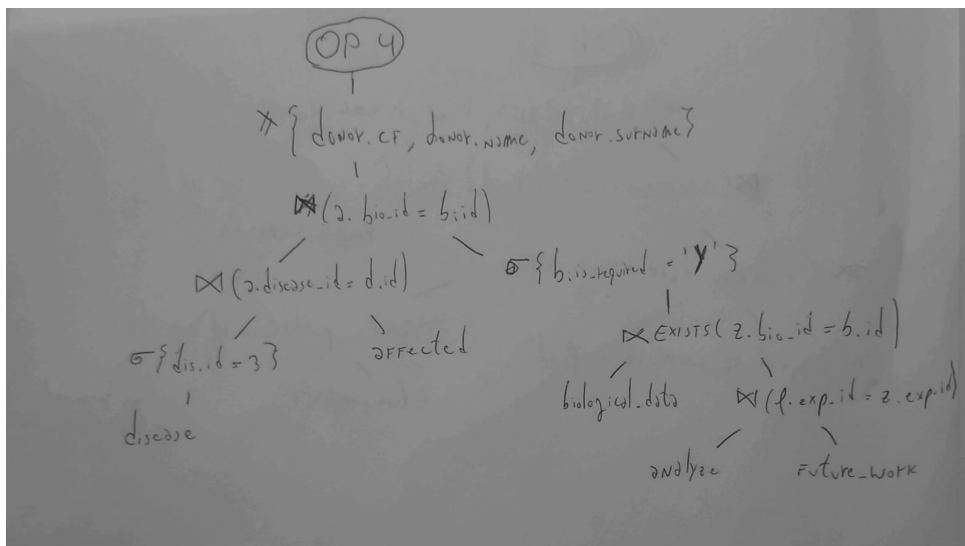 OP 4
π { donor.CF, donor.name, donor.surname}
⋈ (a.bio_id = b.id)
⋈ (a.disease_id = d.id)
σ { b.is_required = 'Y' }
σ { dis.id = 3 }
affected
⋉ EXISTS( z.bio_id = b.id )
disease
biological_data
⋈ (f.exp_id = z.exp_id)
analyze
Future_work